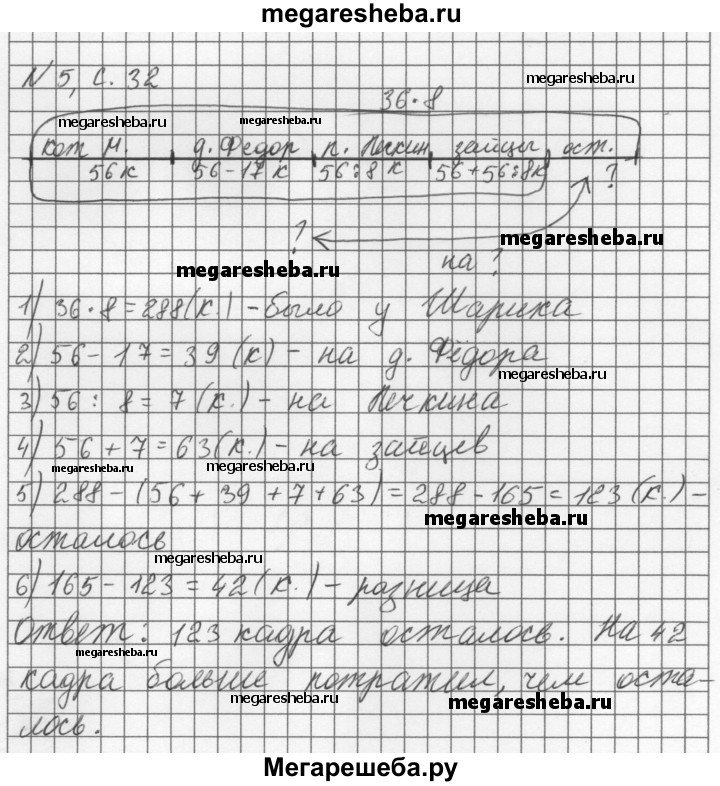 megaresheba.ru
N 5, с. 32
megaresheba.ru
36·8
megaresheba.ru megaresheba.ru
кот М. д. Федор п. Печкин зайцы ост.
56 к 56-17 к 56:8 к 56+56:8к ?
? megaresheba.ru
на ?
megaresheba.ru
1) 36·8=288(к.) - было у Шарика
2) 56-17=39 (к) - на д. Фёдора
megaresheba.ru
3) 56: 8=7(к.) - на Печкина
4) 56+7=63(к.) - на зайцев
megaresheba.ru megaresheba.ru
5) 288-(56+39+7+63)=288-165=123(к.)-
megaresheba.ru
осталось
megaresheba.ru
6) 165-123=42(к.) - разница
Ответ: 123 кадра осталось. На 42
megaresheba.ru
кадра больше потратил, чем оста-
megaresheba.ru megaresheba.ru
лось.
Мегарешеба.ру